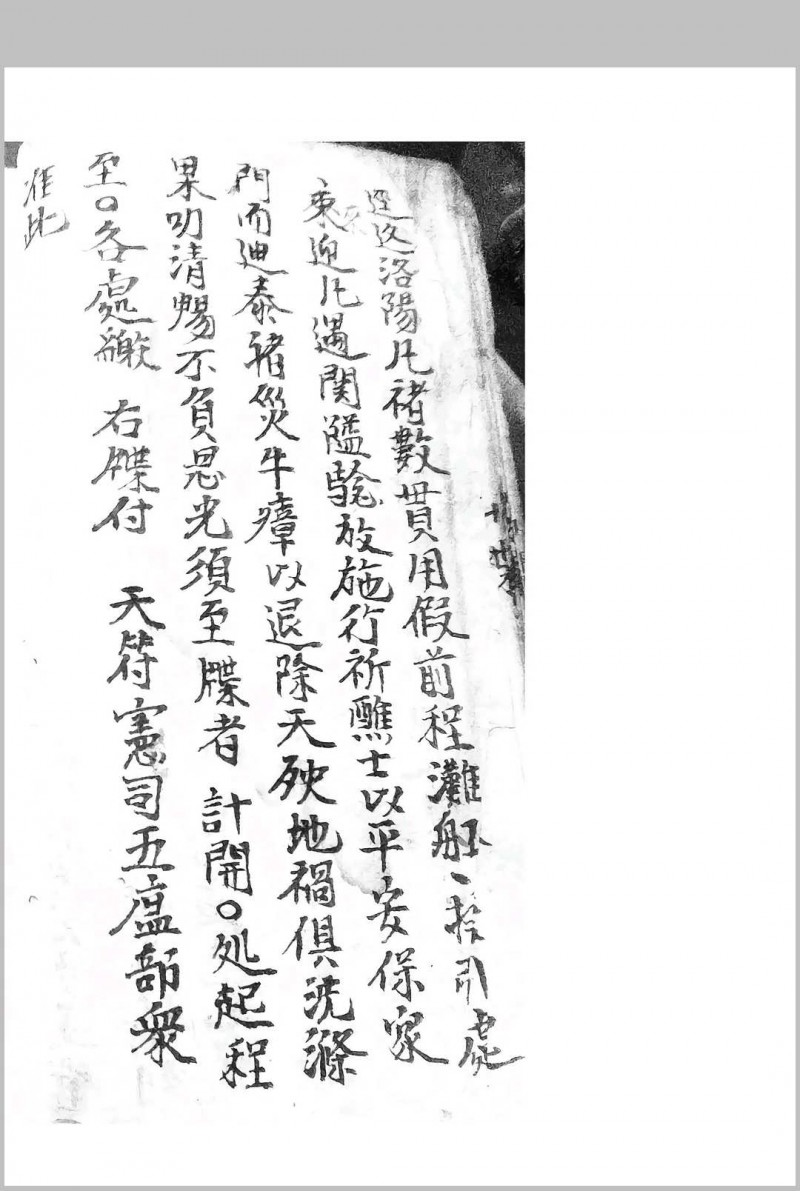 迳送洛陽凡褚數貫用假前程灘船一指引處
來迎凡遇関隘驗放施行祈醮士以平安保家
門而迪泰諸災牛瘴以退除天殃地禍俱洗滌
果叨清暢不負恩光須至牒者 計開〇処起程
至〇各處繳 右牒付 天符憲司五瘟部衆
准此